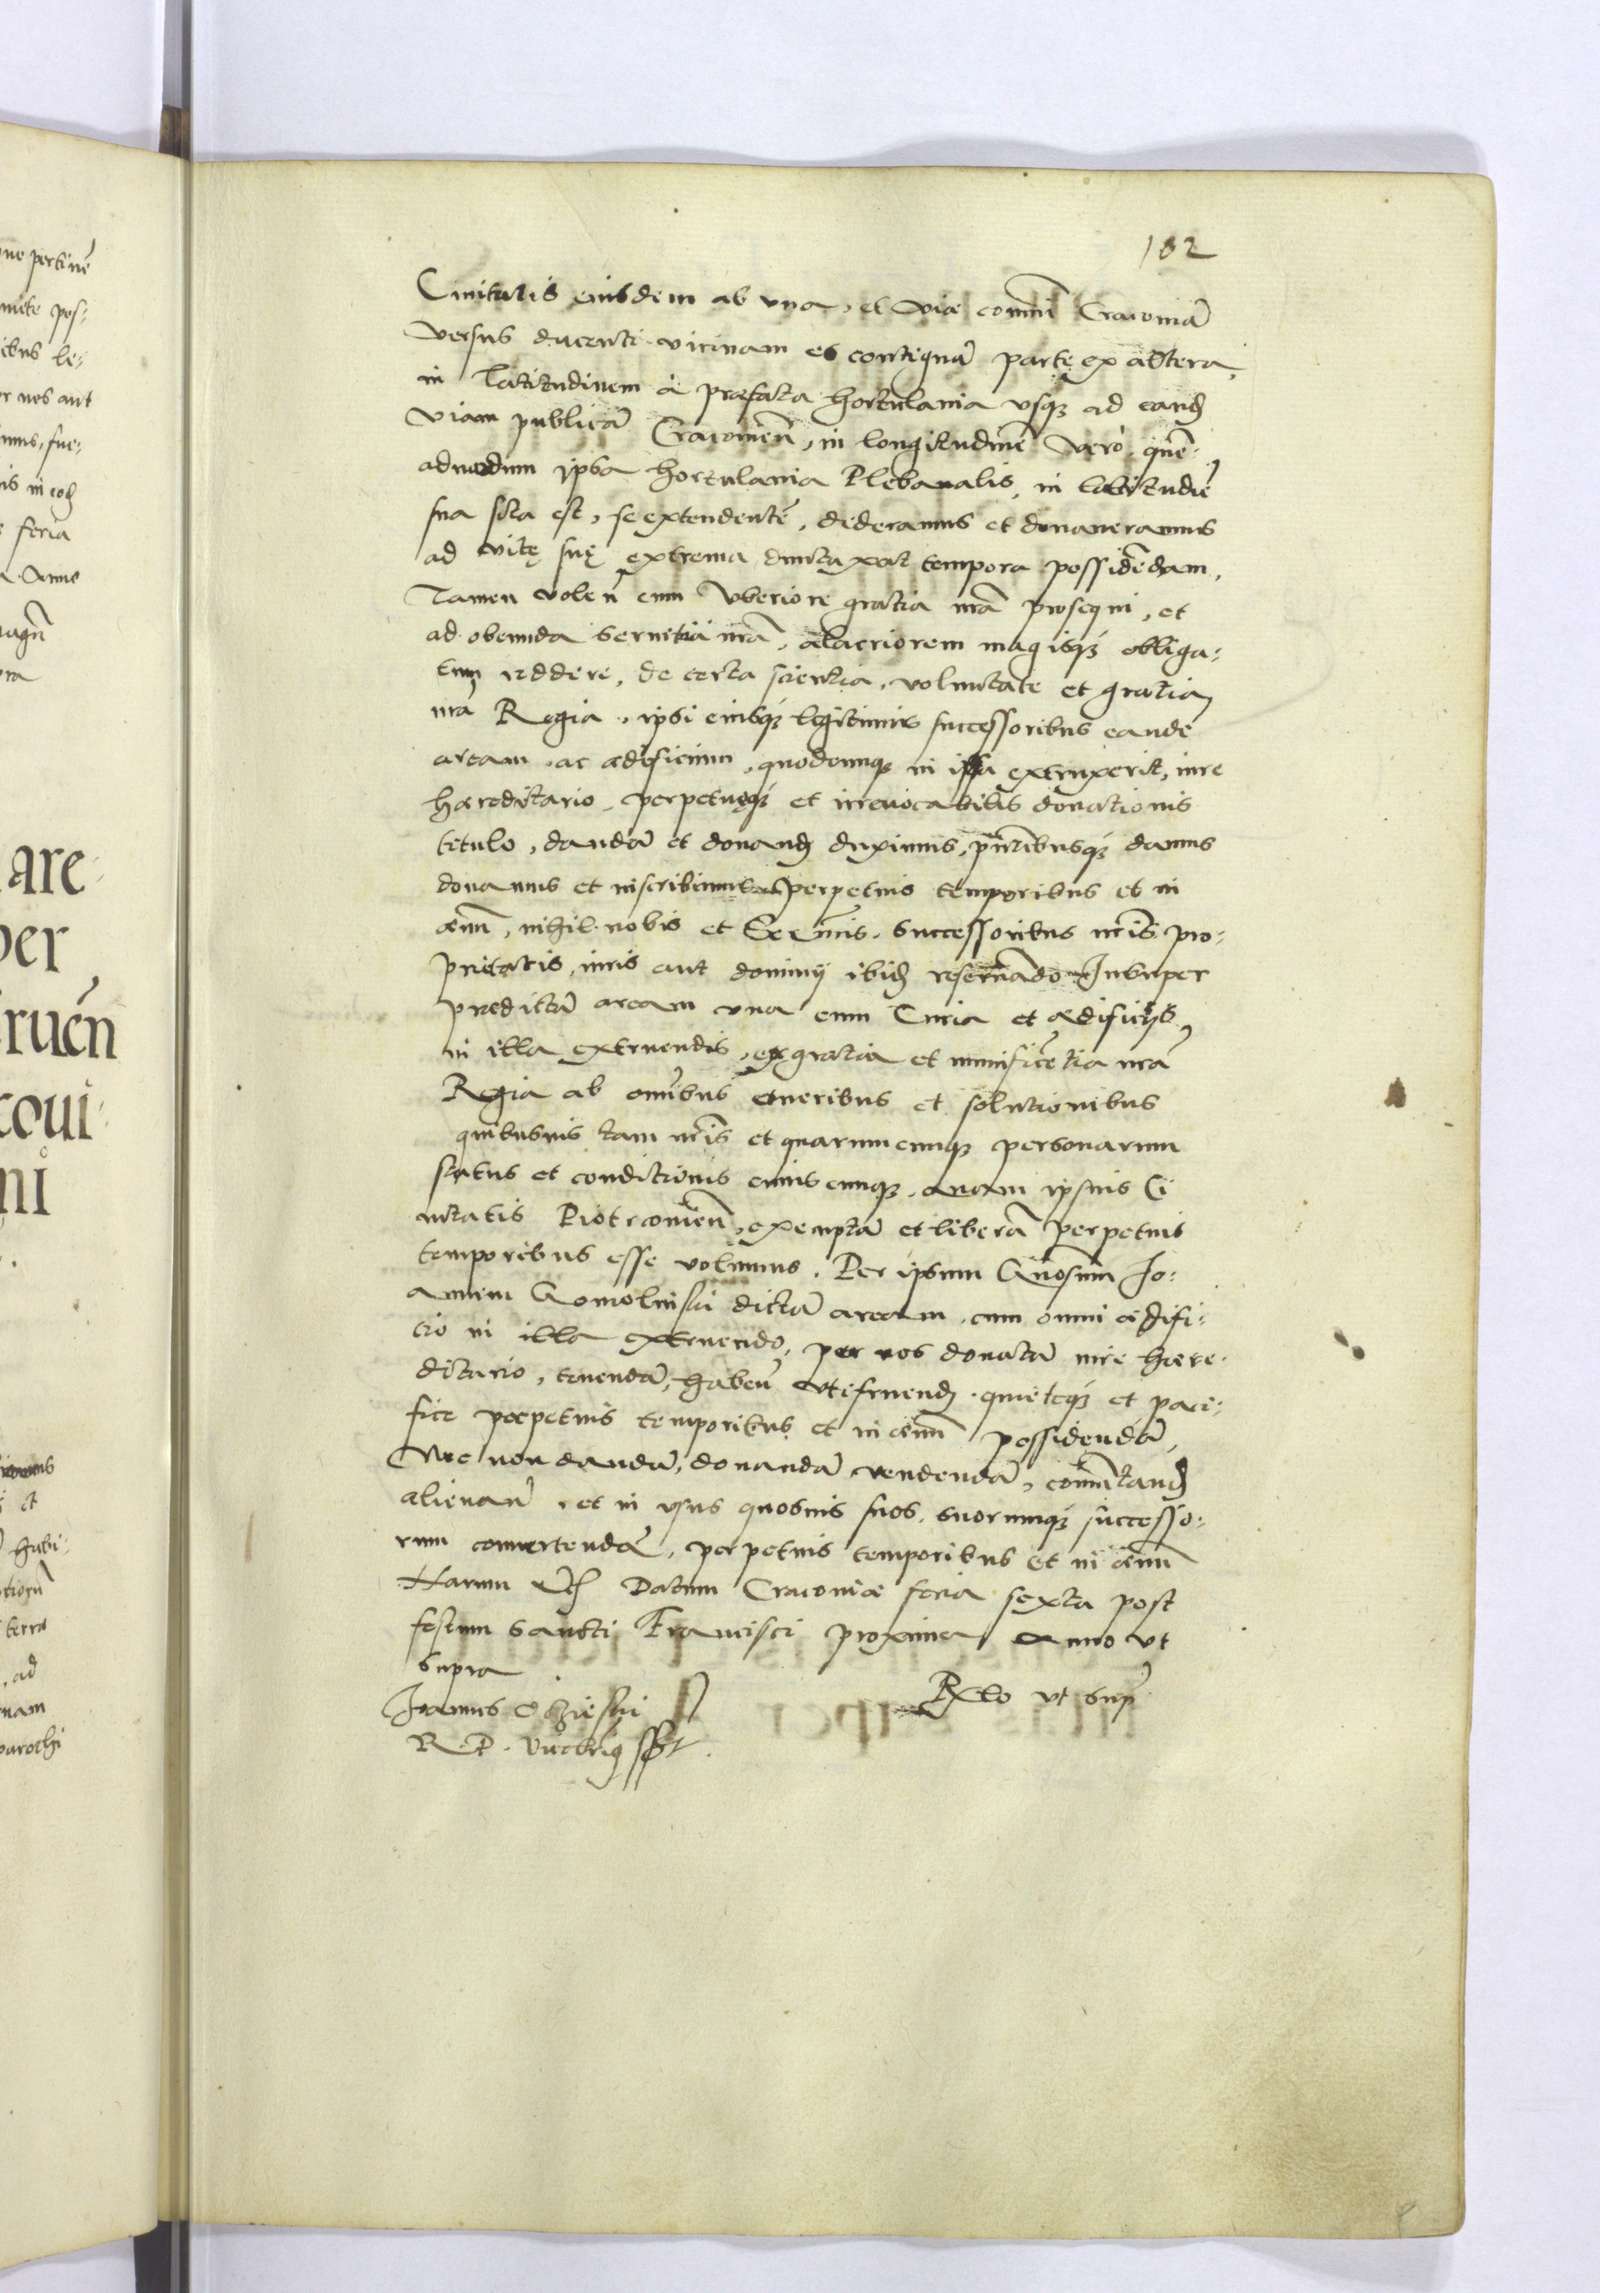 102
Ciuitatis eiusdem ab vna, et viæ comuni Cracouiã
versus ducenti vicinam et contiguã parte ex altera,
in latitudinem à præfata hortulania vsq3 ad eand
viam publicã Cracouień, in longitudinẽ vero quẽ-
admodum ipsa hortulania Plebanalis, in latitudiẽ
sua sita est, se extendentẽ, dederamus et donaueramus
ad vitę suę extrema duntaxat tempora possidẽdam,
Tamen voleń eum vberiore gratia nrã prosequi, et
ad obeunda seruitia nrã, alacriorem magisq3 obliga-
tum reddere, de certa scientia, voluntate et gratia
nrã Regia, ipsi eiusq3 legitimis successoribus eandẽ
aream, ac ædificium, quodcunq3 in illa extruxerit, iure
hæreditario, perpetuęq3 et irreuocabilis donationis
titulo, dandã et donand duximus, pñtibusq3 damus
donamus et inscribimus perpetuis temporibus et in
æuũ, nihil nobis et Serm̃is successoribus nr̃is pro-
prietatis, iuris aut dominij ibid reseruãdo Insuper
prædictã aream vna cum Curia et ædificijs
in illa extruendis, ex gratia et munificẽtia nrã
Regia ab om̃ibus oneribus et solutionibus
quibusuis tam nr̃is et quarumcunq3 personarum
status et conditionis cuiuscunq3, quam ipsius Ci
uitatis Piotrcouień, exemptã et liberã perpetuis
temporibus esse volumus. Per ipsum Gñosum Jo-
annem Gomolinski dictã aream, cum omni ædifi-
tio in illa extruendo, per nos donatã iure hære-
ditario, tenendã, habeń vtifruend, quieteq3 et paci-
fice perpetuis temporibus et in æuũ possidendã,
Nec non dandã, donandã vendendã, com̃utand
alienań, et in vsus quosuis suos, suorumq3 successo-
rum conuertendã, perpetuis temporibus et in æuũ
Harum Datum Cracouiæ feria sexta post
festum Sancti Francisci proxima anno vt
supra
Rlo vt sup
Joannes Oczieski
R. P. Vicecań sst